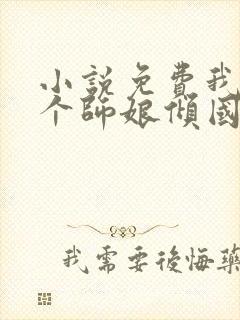 小説免費我
个師娘傾國
我需要後悔藥